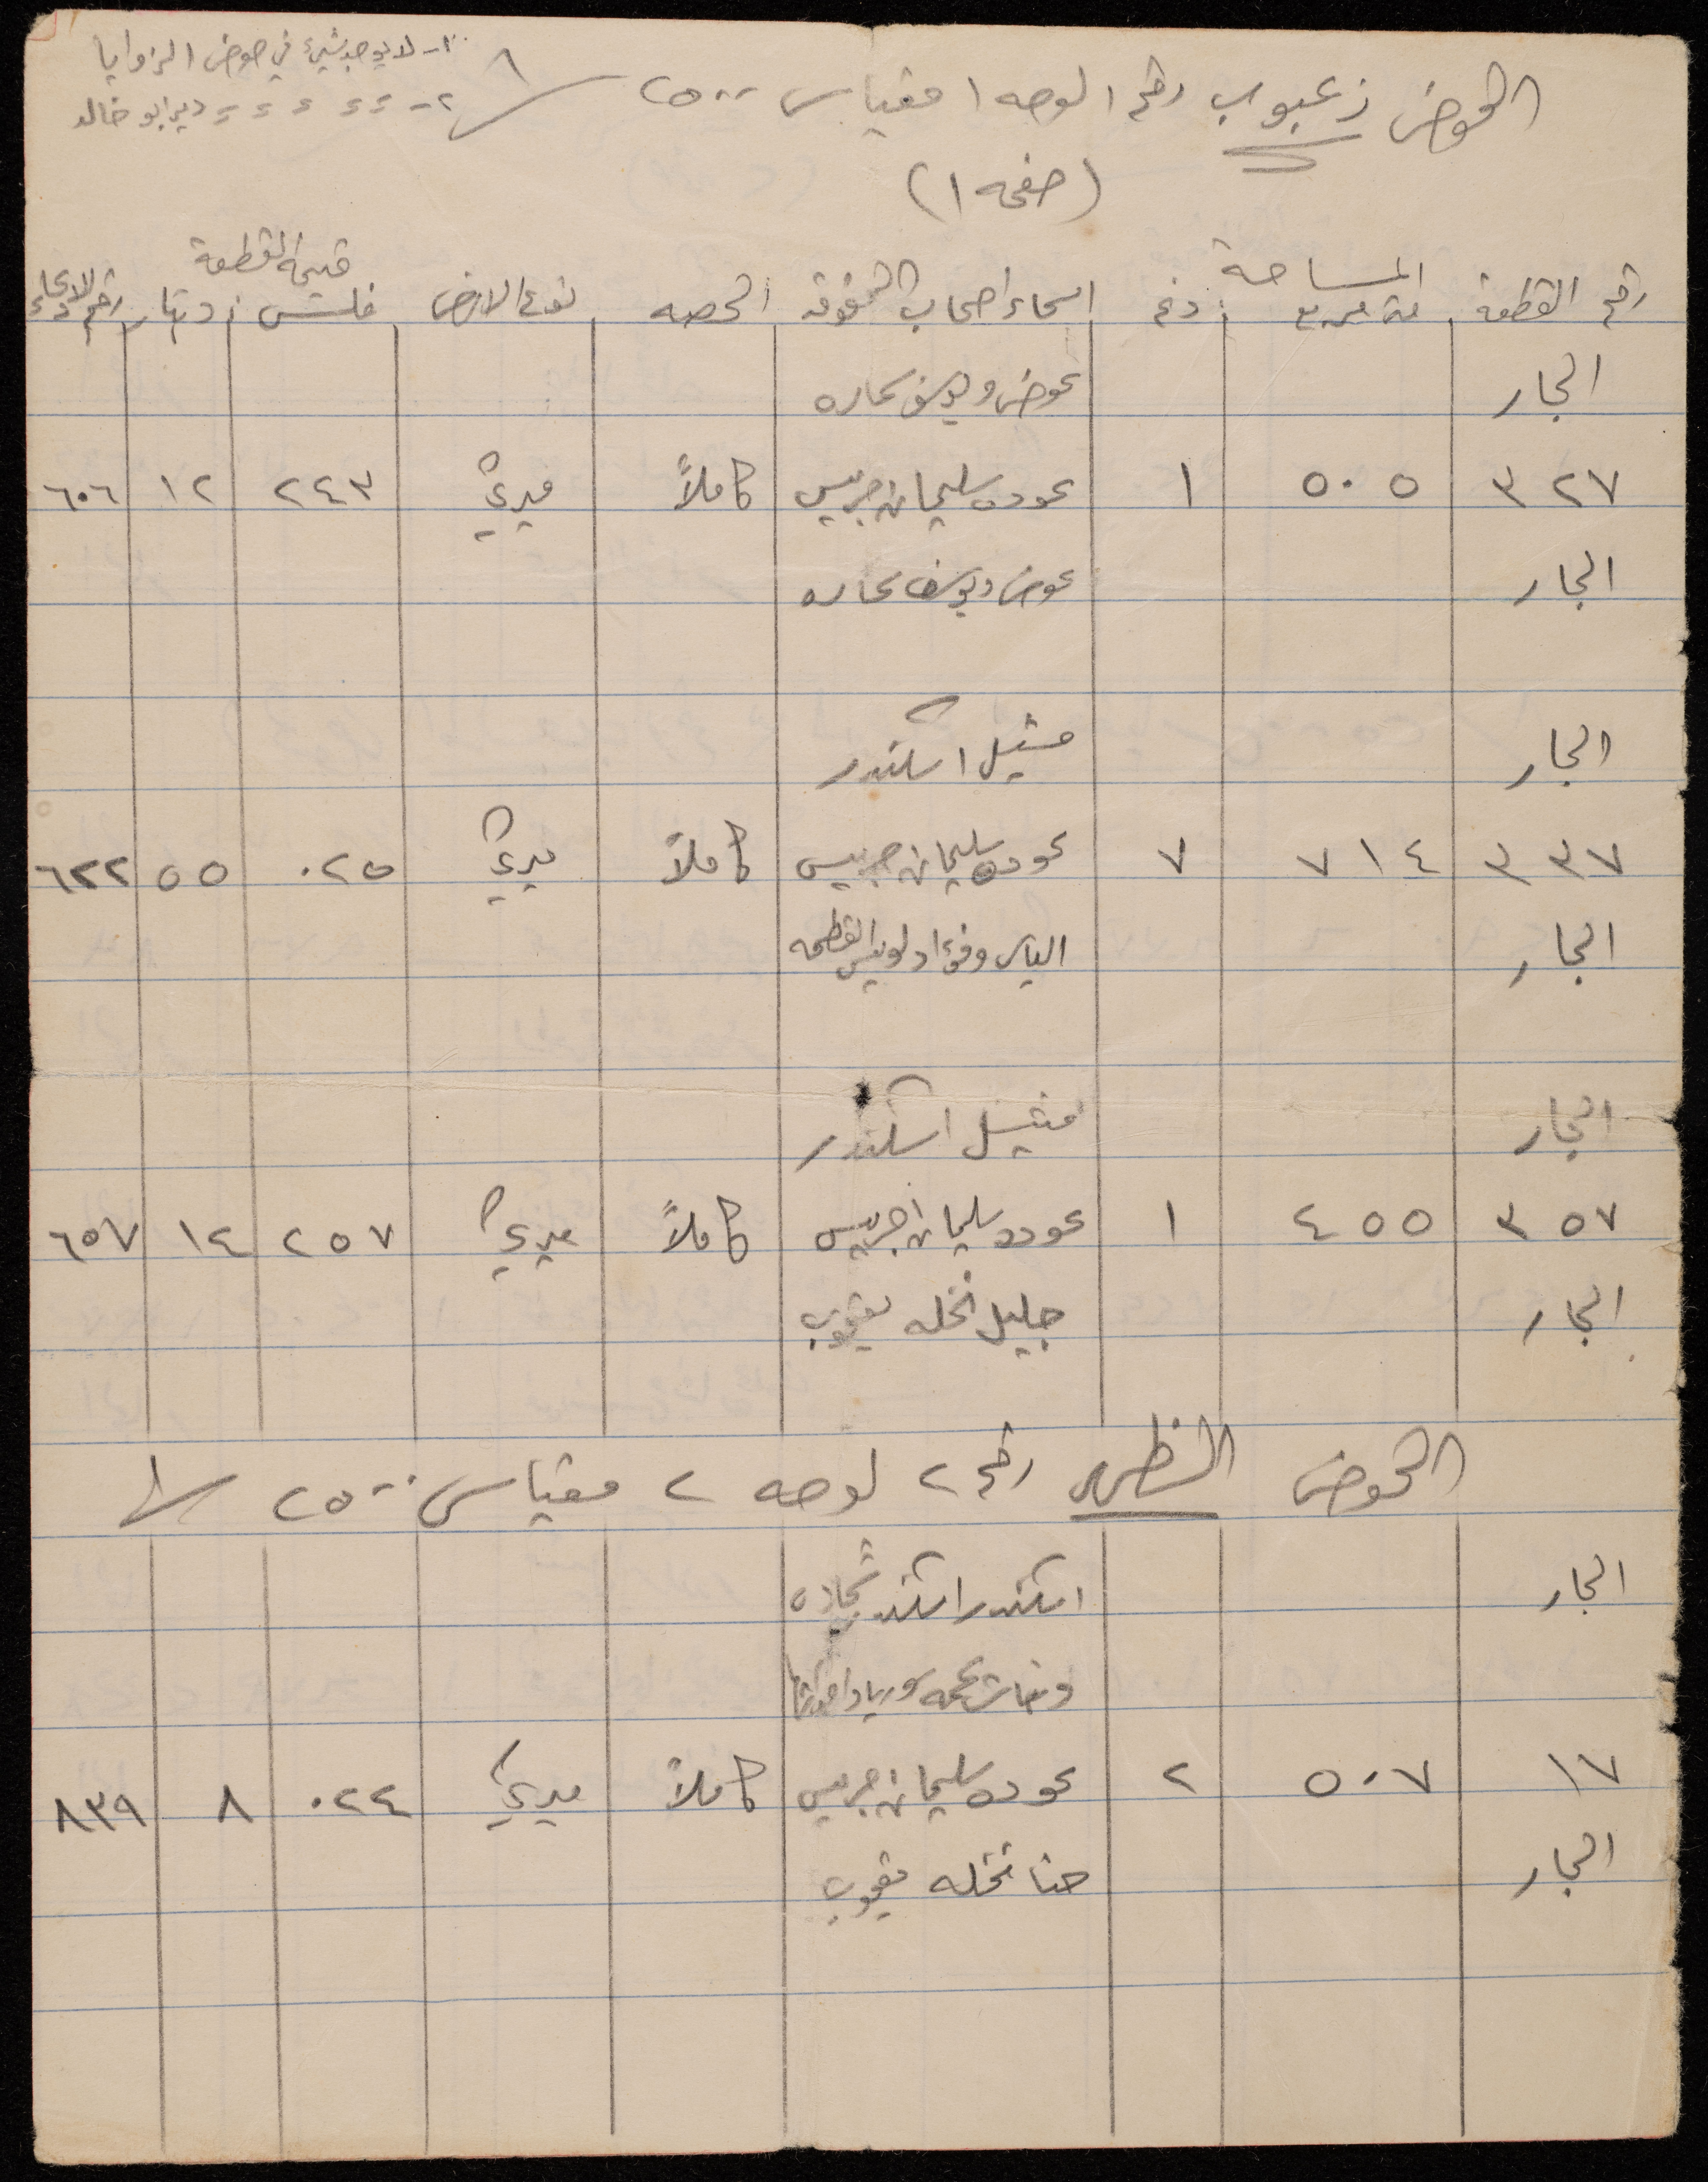 ١- لا يوجد شيء في حوض الزوايا
٢- = = = = = دير ابو خالد
الحوض زعبوب رقم ١ لوحه ١ مقياس ٢٥٠٠/١
(صفحه ١)
المساحة قيمة القطعة
رقم القطعة متر مربع : دنم اسماء اصحاب الحقوق الحصه نوع الارض فلس : دينار رقم الادعاء
الجار عوض ويوسف سحاده
٣٢٧ ٥٠٥ ١ عوده سليمان جريس كاملاً ميري ٢٤٣ ١٢ ٦٠٦
الجار عوض ويوسف سحاده
الجار ميشيل اسكندر
٣٣٧ ٧١٤ ٧ عوده سليمان جريس كاملاً ميري ٠٢٥ ٥٥ ٦٢٢
الجار الياس وفؤاد لويس القطمه
الجار ميشيل اسكندر
٣٥٧ ٤٥٥ ١ عوده سليمان جريس كاملاً ميري ٢٥٧ ١٤ ٦٥٧
الجار جليل نخله يعقوب
الحوض الظهر رقم ٢ لوحه ٢ مقياس ٢٥٠٠/١
الجار اسكندر اسكندر شحاده
وبنات عمه سوريا
١٧ ٥٠٧ ٢ عوده سليمان جريس كاملاً ميري ٠٢٤ ٨ ٨٣٩
الجار حنا نخله يعقوب